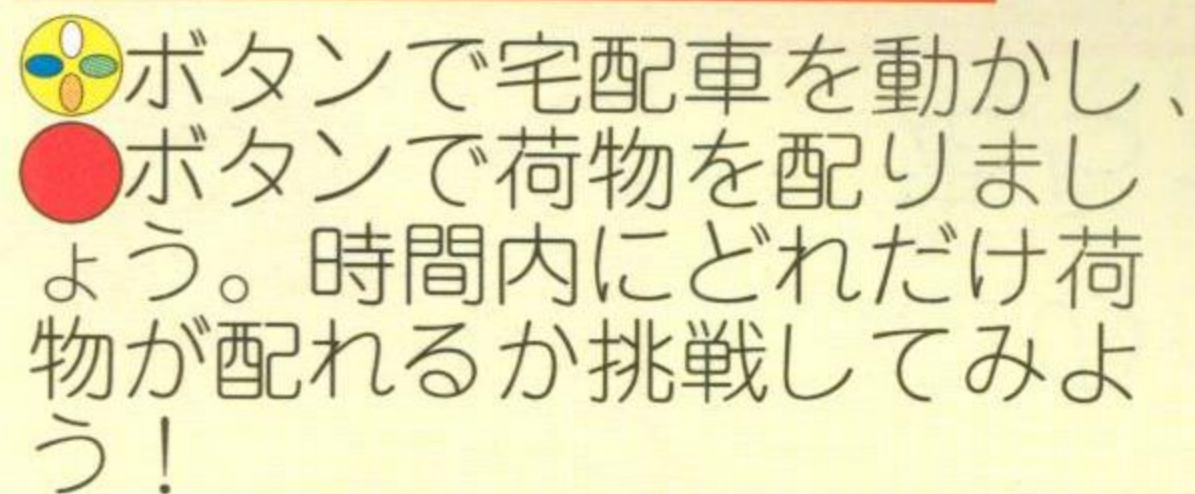 ボタンで宅配車を動かし、
ボタンで荷物を配りまし
ょう。時間内にどれだけ荷
物が配れるか挑戦してみよ
う！